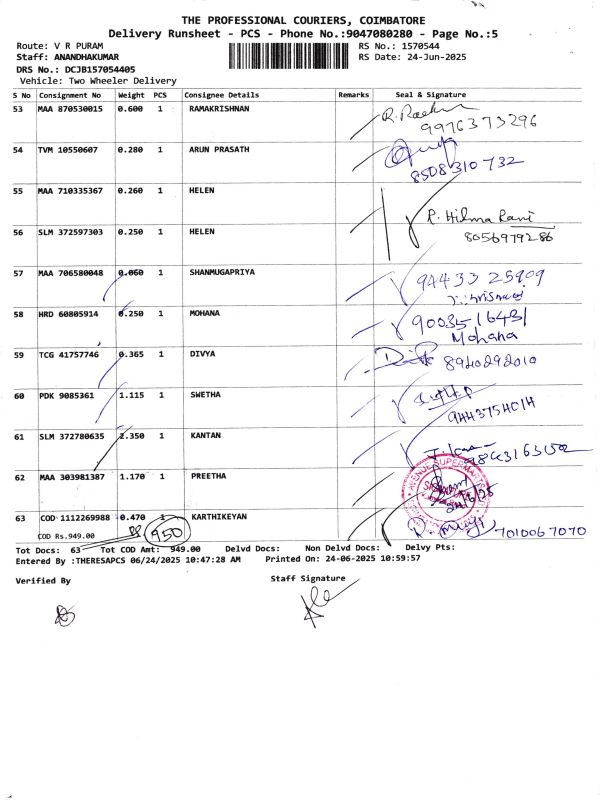 THE PROFESSIONAL COURIERS, COIMBATORE
Delivery Runsheet - PCS - Phone No.:9047080280 - Page No.:5
Route: V R PURAM RS No.: 1570544
Staff: ANANDHAKUMAR RS Date: 24-Jun-2025
DRS No.: DCJB157054405
Vehicle: Two Wheeler Delivery
S No Consignment No Weight PCS Consignee Details Remarks Seal & Signature
53 MAA 870530015 0.600 1 RAMAKRISHNAN
9976373296
54 TVM 10550607 0.280 1 ARUN PRASATH
8508310732
55 MAA 710335367 0.260 1 HELEN
R. Hilma Rani
56 SLM 372597303 0.250 1 HELEN 8056979286
57 MAA 706580048 0.060 1 SHANMUGAPRIYA 94433 25909
58 HRD 60805914 0.250 1 MOHANA 9003516431
Mohana
59 TCG 41757746 0.365 1 DIVYA 8940292010
60 PDK 9085361 1.115 1 SWETHA
9443754014
61 SLM 372780635 2.350 1 KANTAN
62 MAA 303981387 1.170 1 PREETHA
63 COD 1112269988 0.470 1 KARTHIKEYAN
COD Rs.949.00 950 7010067070
Tot Docs: 63 Tot COD Amt: 949.00 Delvd Docs: Non Delvd Docs: Delvy Pts:
Entered By :THERESAPCS 06/24/2025 10:47:28 AM Printed On: 24-06-2025 10:59:57
Verified By Staff Signature